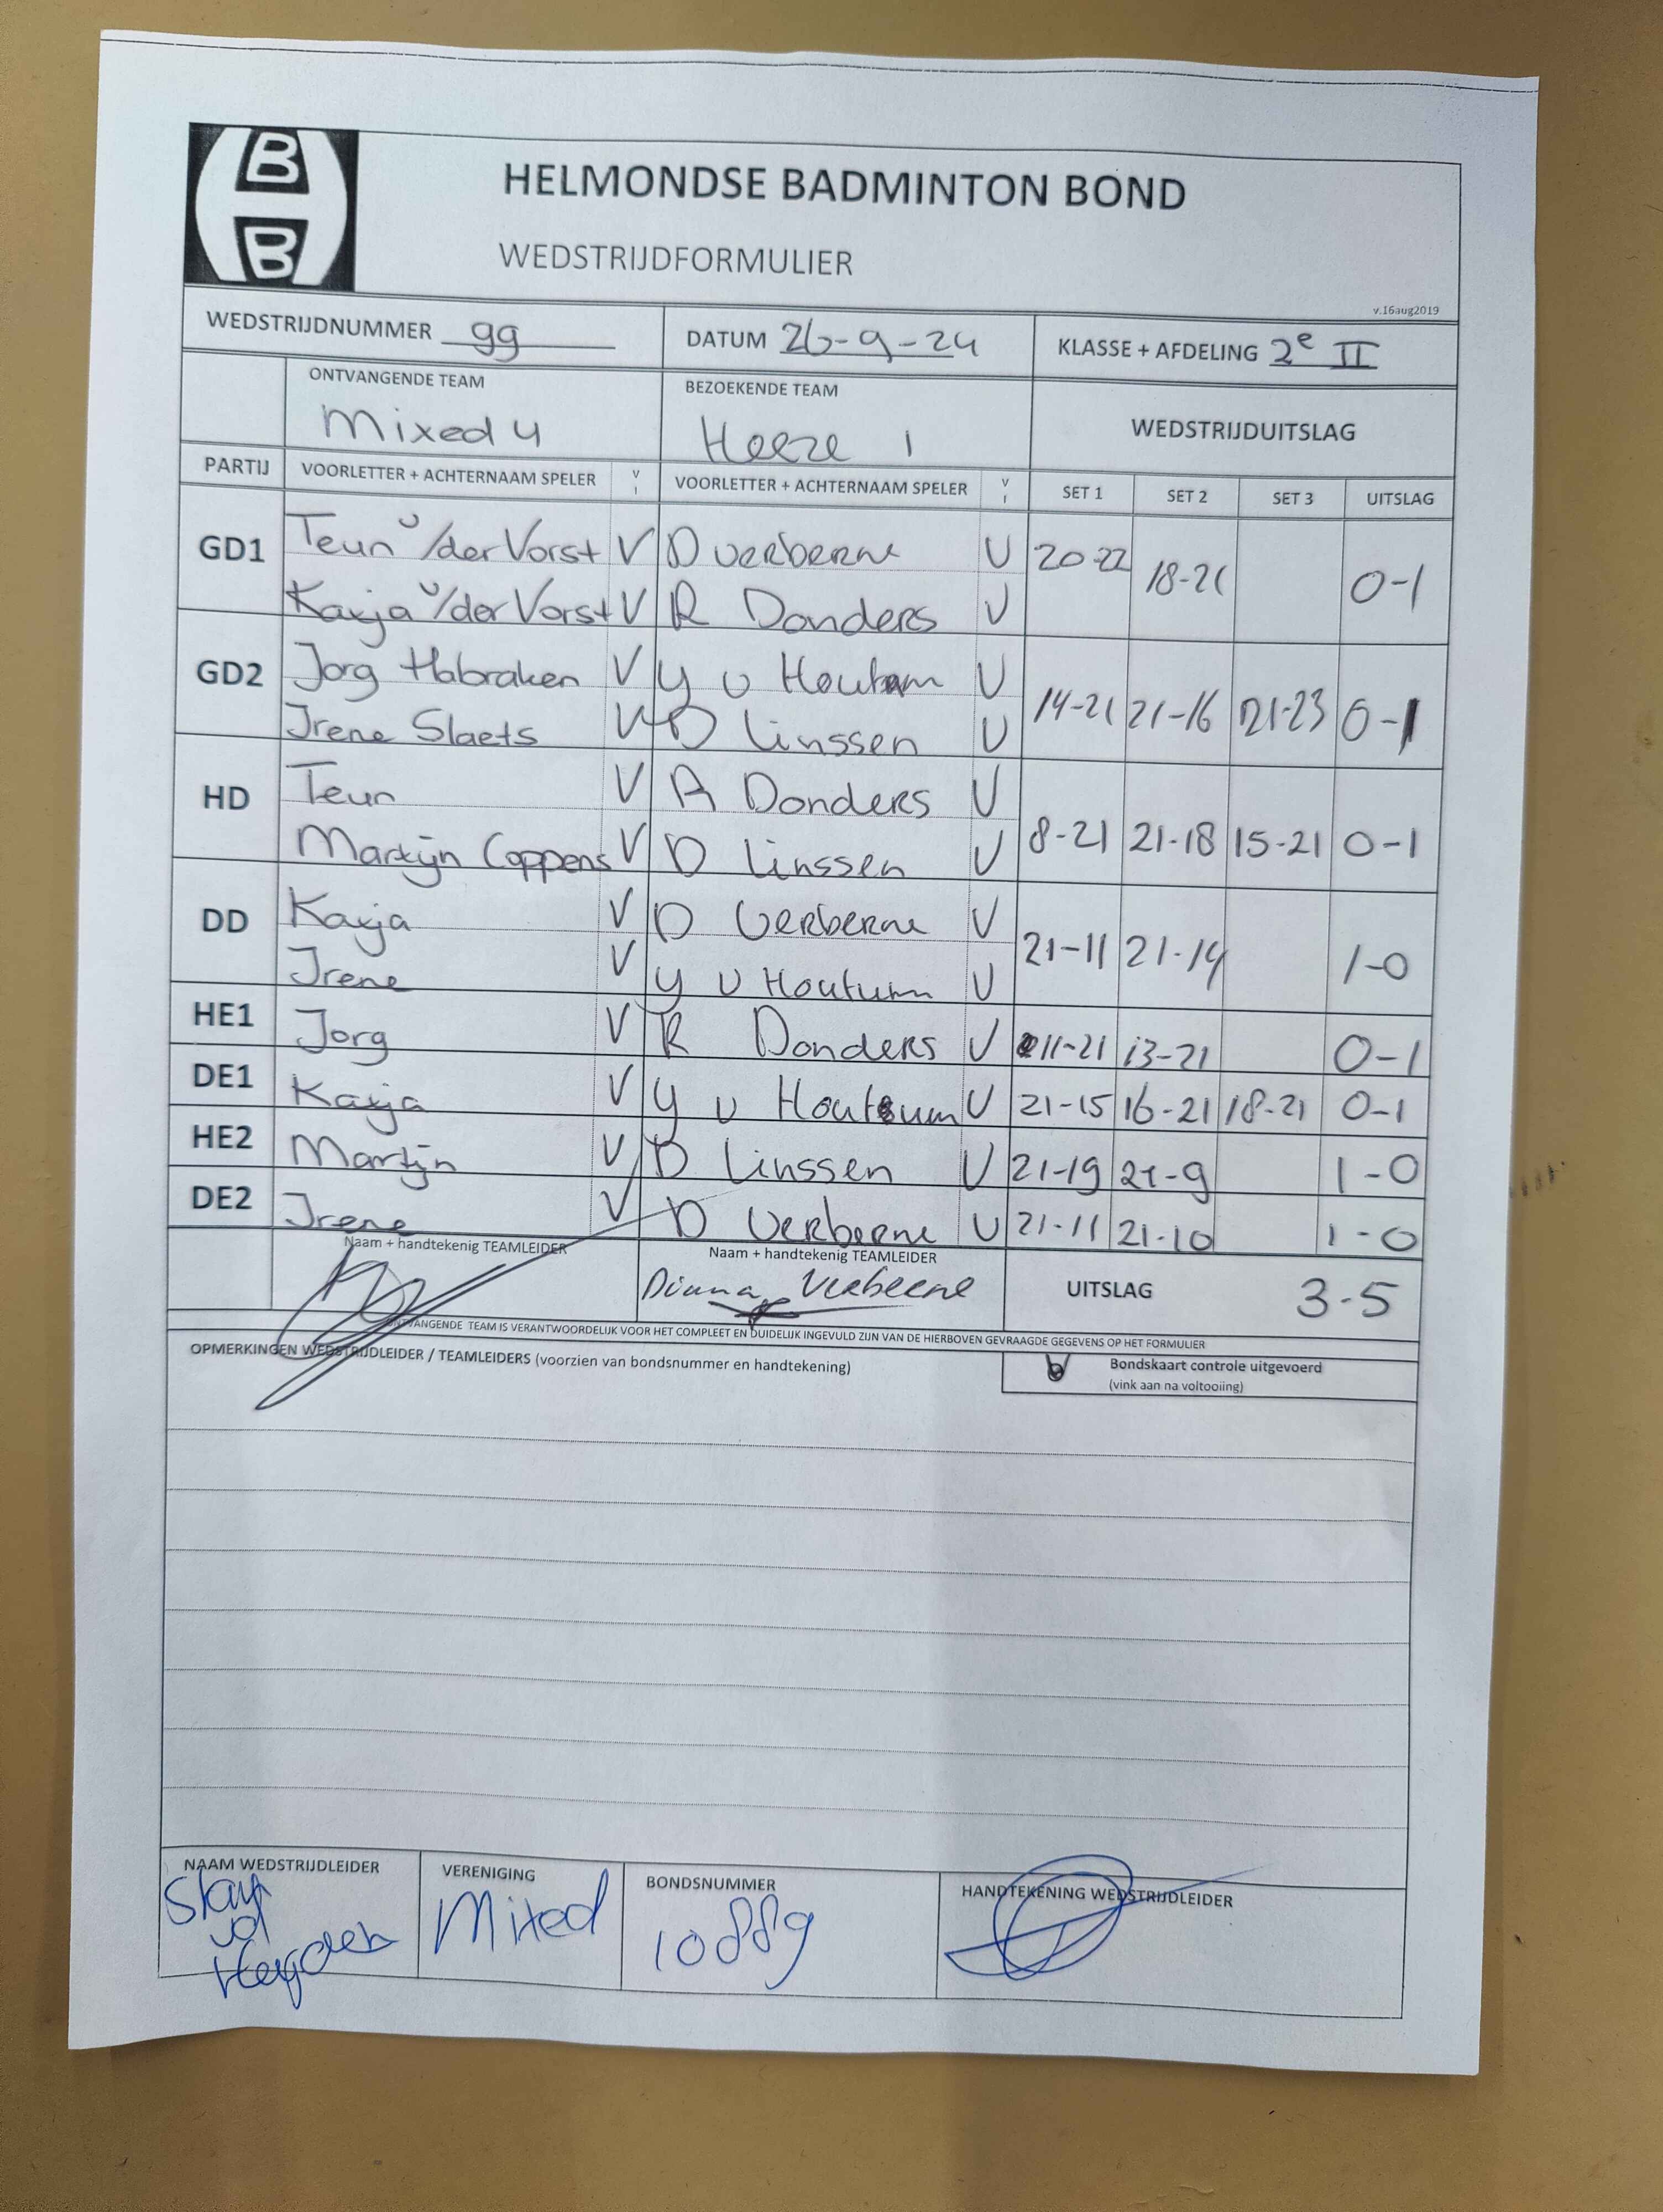 B
B
HELMONDSE BADMINTON BOND
WEDSTRIJDFORMULIER
v.16aug2019
WEDSTRIJDNUMMER 99 DATUM 26-9-24 KLASSE + AFDELING 2e II
ONTVANGENDE TEAM BEZOEKENDE TEAM WEDSTRIJDUITSLAG
Mixed 4 Heeze 1
PARTIJ VOORLETTER + ACHTERNAAM SPELER V I VOORLETTER + ACHTERNAAM SPELER V I SET 1 SET 2 SET 3 UITSLAG
GD1 Teun v/der Vorst V D Verberne V 20-22 18-21 0-1
Kayja v/der Vorst V R Donders V
GD2 Jorg Habraken V Y v Houtum V 14-21 21-16 21-23 0-1
Irene Slaets V D Linssen V
HD Teun V R Donders V 8-21 21-18 15-21 0-1
Martijn Coppens V D Linssen V
DD Kayja V D Verberne V 21-11 21-14 1-0
Irene V Y v Houtum V
HE1 Jorg V R Donders V 11-21 13-21 0-1
DE1 Kayja V Y v Houtum V 21-15 16-21 18-21 0-1
HE2 Martijn V D Linssen V 21-19 21-9 1-0
DE2 Irene V D Verberne V 21-11 21-10 1-0
Naam + handtekenig TEAMLEIDER Naam + handtekenig TEAMLEIDER UITSLAG 3-5
Diana Verberne
ONTVANGENDE TEAM IS VERANTWOORDELIJK VOOR HET COMPLEET EN DUIDELIJK INGEVULD ZIJN VAN DE HIERBOVEN GEVRAAGDE GEGEVENS OP HET FORMULIER
OPMERKINGEN WEDSTRIJDLEIDER / TEAMLEIDERS (voorzien van bondsnummer en handtekening) Bondskaart controle uitgevoerd
(vink aan na voltooiing)
NAAM WEDSTRIJDLEIDER VERENIGING BONDSNUMMER HANDTEKENING WEDSTRIJDLEIDER
vd Heyden Mixed 10889